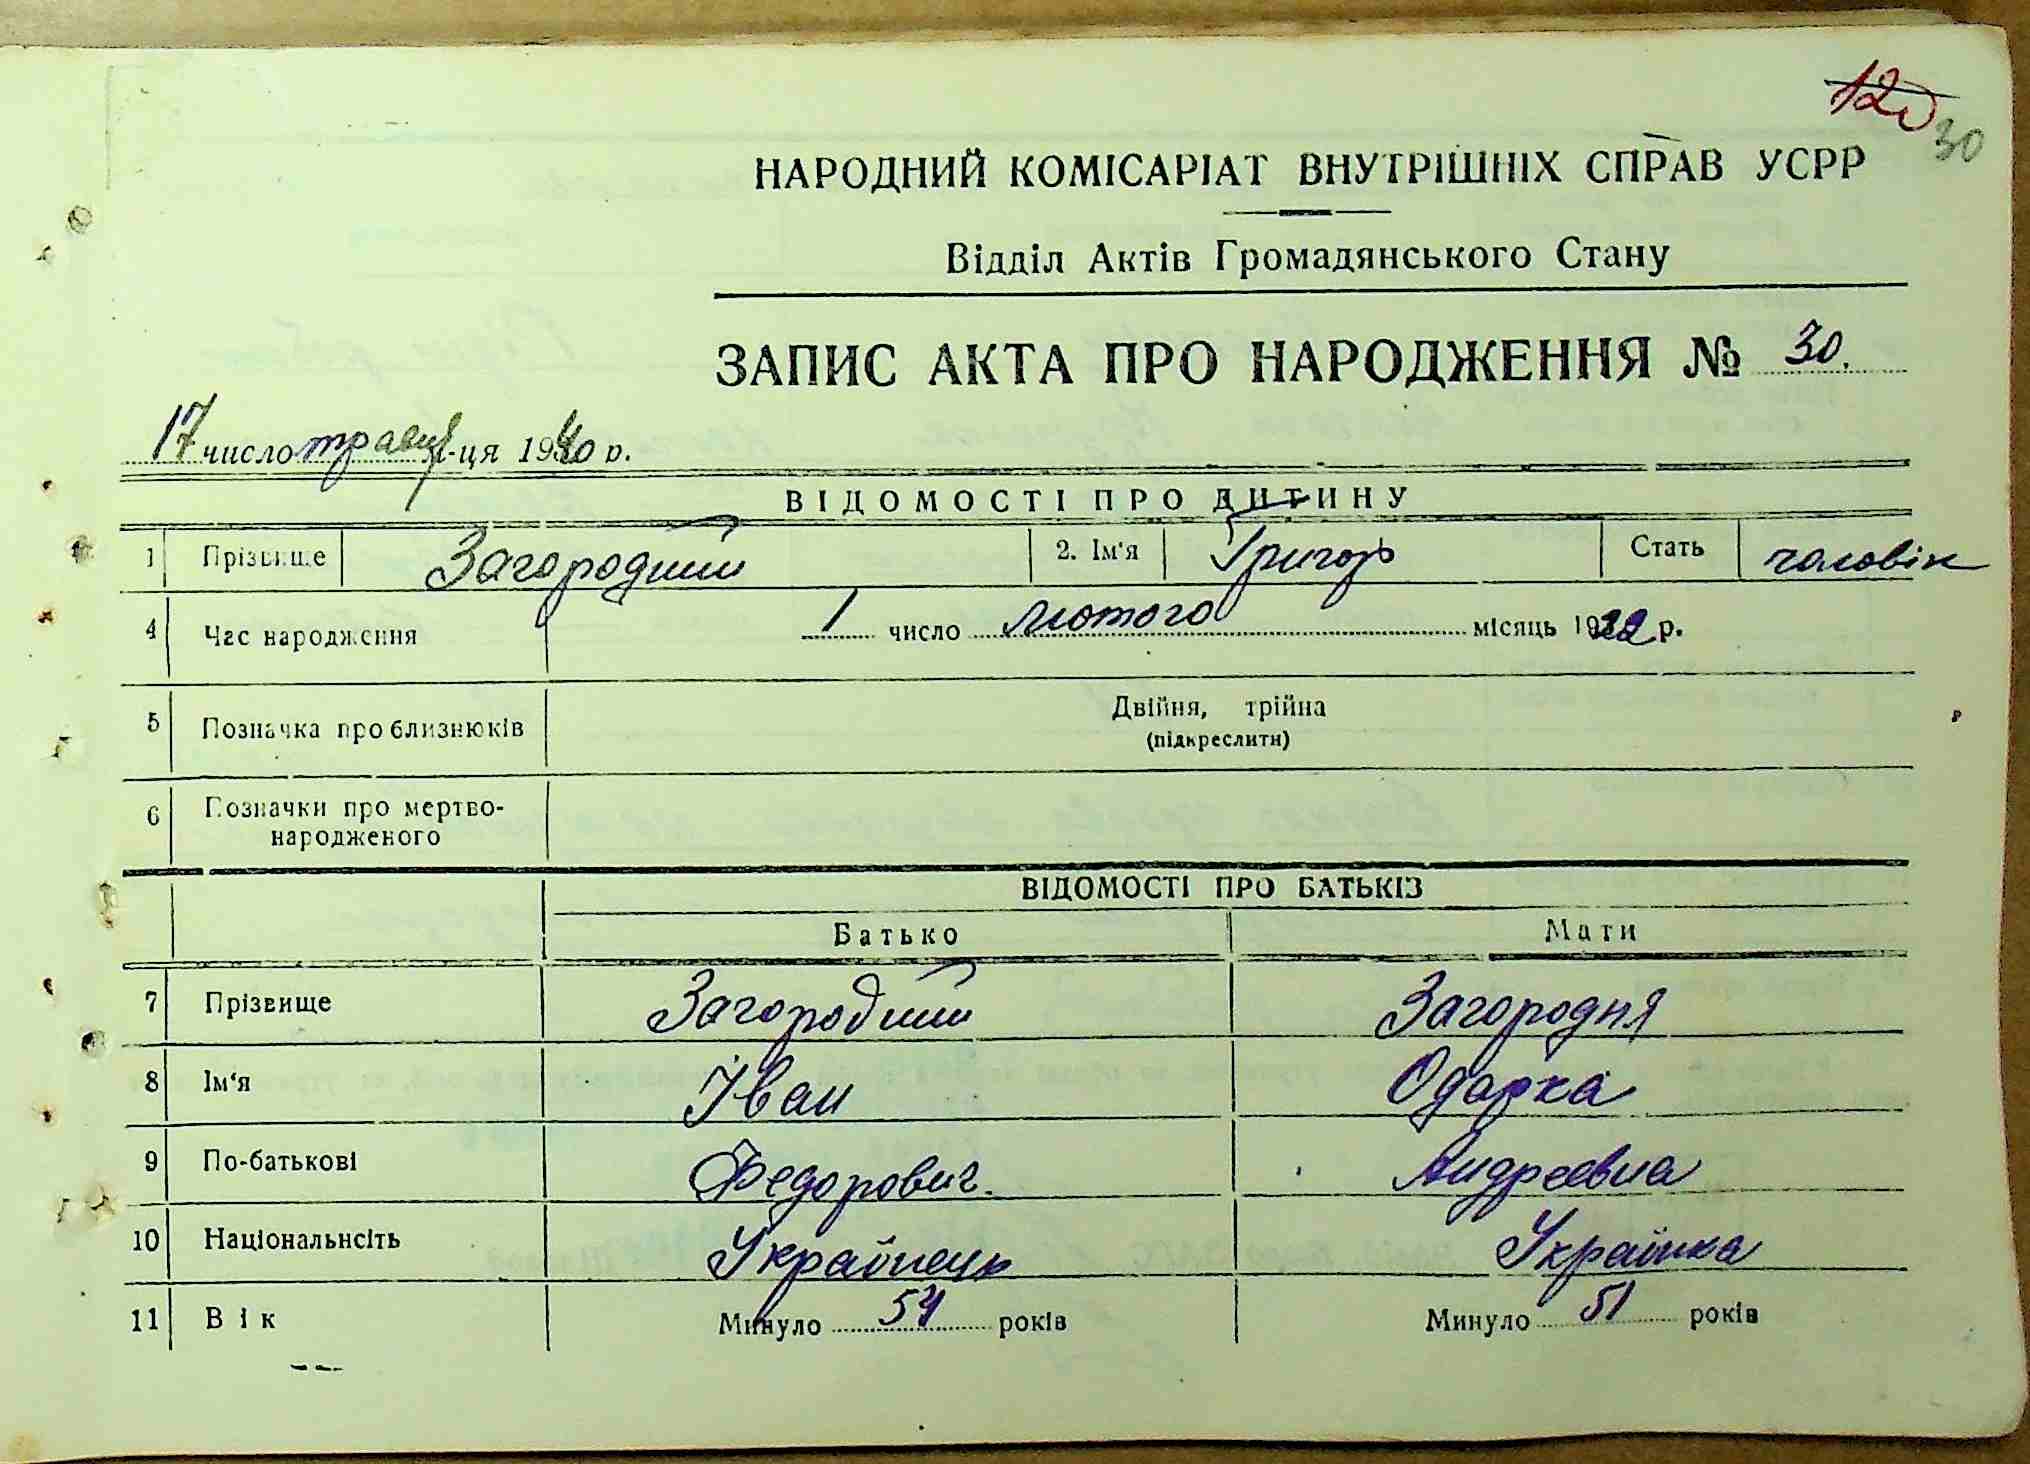 120
30
НАРОДНИЙ КОМІСАРІАТ ВНУТРІШНІХ СПРАВ УСРР
Відділ Актів Громадянського Стану
ЗАПИС АКТА ПРО НАРОДЖЕННЯ № 30.
17 число травня м-ця 1940 р.
ВІДОМОСТІ ПРО ДИТИНУ
1 Прізвище Загородний 2. Ім'я Григорь Стать чоловік
4 Час народження 1 число лютого місяць 1922 р.
5 Позначка про близнюків Двійня, трійна
(підкреслити)
6 Позначки про мертво-
народженого
ВІДОМОСТІ ПРО БАТЬКІВ
Батько Мати
7 Прізвище Загородний Загородня
8 Ім'я Іван Одарка
9 По-батькові Федорович. Андреевна
10 Національнсіть Українець Українка
11 Вік Минуло 54 років Минуло 51 років